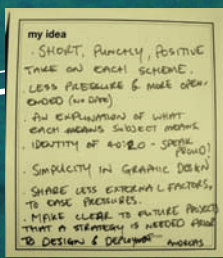 my idea
· SHORT, PUNCHY, POSITIVE
TAKE ON EACH SCHEME.
· LESS PRESSURE & MORE OPEN-
ENDED (NO DATE)
· AN EXPLANATION OF WHAT
EACH MEANS SUBJECT MEANS
· IDENTITY OF 40:20 - SPEAK
PROUD!
· SIMPLICITY IN GRAPHIC DESIGN
· SHARE LESS EXTERNAL FACTORS,
TO EASE PRESSURES.
· MAKE CLEAR TO FUTURE PROJECTS
THAT A STRATEGY IS NEEDED PRIOR
TO DESIGN & DEPLOYMENT
ANDREAS